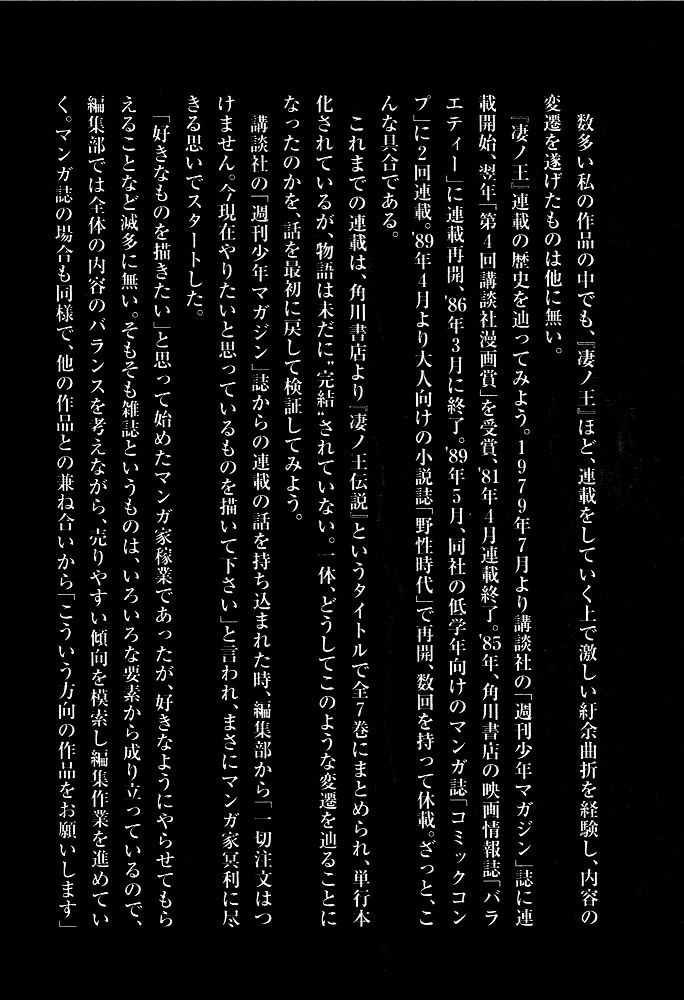 数多い私の作品の中でも、『凄ノ王』ほど、連載をしていく上で激しい紆余曲折を経験し、内容の
変遷を遂げたものは他に無い。
『凄ノ王』連載の歴史を辿ってみよう。1979年7月より講談社の「週刊少年マガジン」誌に連
載開始、翌年「第4回講談社漫画賞」を受賞、'81年4月連載終了。'85年、角川書店の映画情報誌「バラ
エティー」に連載再開、'86年3月に終了。'89年5月、同社の低学年向けのマンガ誌「コミックコン
プ」に2回連載。'89年4月より大人向けの小説誌「野性時代」で再開、数回を持って休載。ざっと、こ
んな具合である。
これまでの連載は、角川書店より『凄ノ王伝説』というタイトルで全7巻にまとめられ、単行本
化されているが、物語は未だに“完結”されていない。一体、どうしてこのような変遷を辿ることに
なったのかを、話を最初に戻して検証してみよう。
講談社の「週刊少年マガジン」誌からの連載の話を持ち込まれた時、編集部から「一切注文はつ
けません。今現在やりたいと思っているものを描いて下さい」と言われ、まさにマンガ家冥利に尽
きる思いでスタートした。
「好きなものを描きたい」と思って始めたマンガ家稼業であったが、好きなようにやらせてもら
えることなど滅多に無い。そもそも雑誌というものは、いろいろな要素から成り立っているので、
編集部では全体の内容のバランスを考えながら、売りやすい傾向を模索し編集作業を進めてい
く。マンガ誌の場合も同様で、他の作品との兼ね合いから「こういう方向の作品をお願いします」